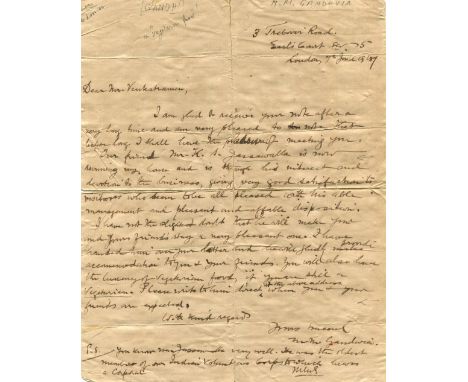 M. M. GANDEVIA
(GANDHI)
a vegetarian food!
3 Trebovir Road.
Earl's Court SW. 5
London, 7th June 1919
Dear Mr Venkatraman,
I am glad to receive your note after a
very long time and am very pleased to note that
before long I shall have the pleasure of meeting you.
Our friend Mr. H. Jassawalla is now
running my house and is through his interest and
devotion to the business, giving very good satisfaction to
visitors who seem to be all pleased with his able
management and pleasant and affable disposition.
I have not the slightest doubt that he will make you
and your friends stay a very pleasant one. I have
handed him over your letter and he will gladly provide
accommodation to you & your friends. You will also have
the luxury of vegetarian food, if you are still a
Vegetarian. Please write to him direct at the above address when you or your
friends are expected.
With kind regards
Yours sincerely
M. M. Gandevia
P.S. You know Mr Jassawalla very well. He was the oldest
member of our Indian Volunteers Corp to which he was
a Corporal